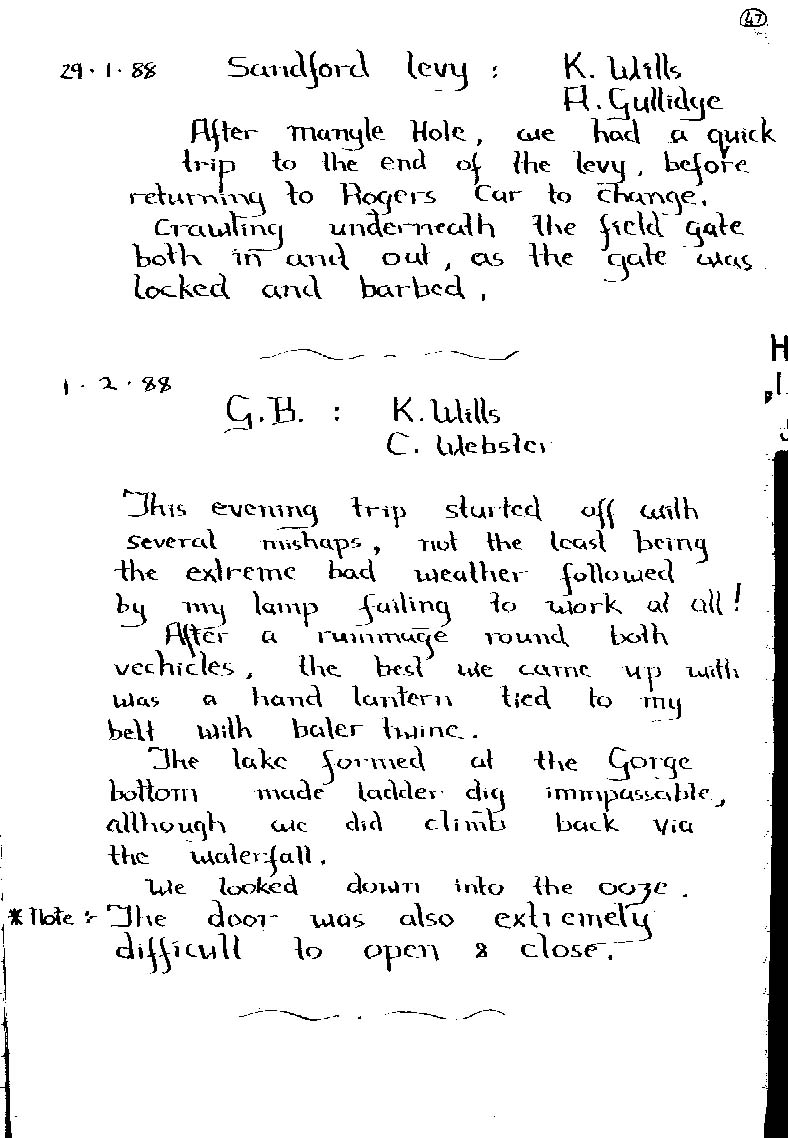 47
29.1.88 Sandford Levy : K. Wills
A. Gullidge
After Mangle Hole, we had a quick
trip to the end of the levy, before
returning to Rogers Car to change.
Crawling underneath the field gate
both in and out, as the gate was
locked and barbed.
1.2.88
G.B. : K. Wills
C. Webster
This evening trip started off with
several mishaps, not the least being
the extreme bad weather followed
by my lamp failing to work at all!
After a rummage round both
vechicles, the best we came up with
was a hand lantern tied to my
belt with baler twine.
The lake formed at the Gorge
bottom made ladder dig immpassable,
although we did climb back via
the waterfall.
We looked down into the ooze.
* Note :- The door was also extremely
difficult to open & close.
H